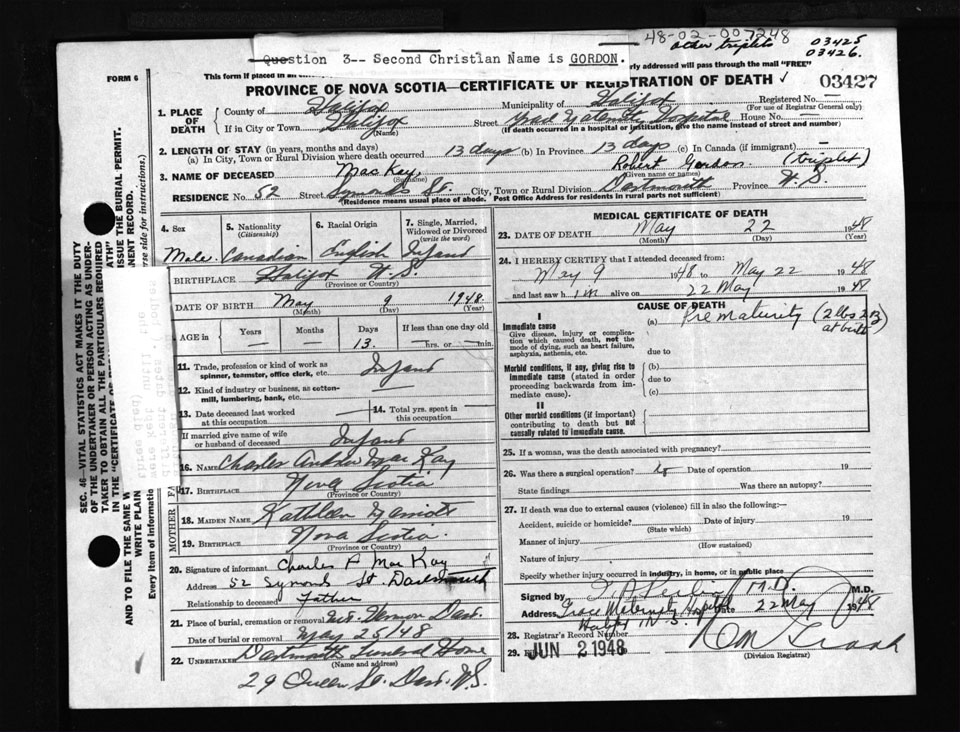 48-02-007248
other triplets 03425
03426.
Question 3-- Second Christian Name is GORDON.
FORM 6 This form if placed in an rly addressed will pass through the mail "FREE"
PROVINCE OF NOVA SCOTIA—CERTIFICATE OF REGISTRATION OF DEATH 03427
1. PLACE OF DEATH County of Halifax Municipality of Halifax Registered No. —
(For use of Registrar General only)
If in City or Town Halifax (Name) Street Grace Maternity Hospital House No. —
(If death occurred in a hospital or institution, give the name instead of street and number)
2. LENGTH OF STAY (in years, months and days)
(a) In City, Town or Rural Division where death occurred 13 days (b) In Province 13 days (c) In Canada (if immigrant) —
3. NAME OF DECEASED MacKay, (Surname) Robert Gordon (triplet) (Given name or names)
RESIDENCE No. 52 Street Symonds St. City, Town or Rural Division Dartmouth Province N.S.
(Residence means usual place of abode. Post Office Address for residents in rural parts not sufficient)
4. Sex 5. Nationality (Citizenship) 6. Racial Origin 7. Single, Married, Widowed or Divorced (write the word)
Male. Canadian English Infant
BIRTHPLACE Halifax N.S.
(Province or Country)
DATE OF BIRTH May 9 1948
(Month) (Day) (Year)
AGE in Years Months Days If less than one day old
— — 13. —hrs. or —min.
11. Trade, profession or kind of work as spinner, teamster, office clerk, etc. Infant
12. Kind of industry or business, as cotton-mill, lumbering, bank, etc.
13. Date deceased last worked at this occupation 14. Total yrs. spent in this occupation.
If married give name of wife or husband of deceased Infant
16. Name Charles Andrew MacKay
17. Birthplace Nova Scotia
(Province or Country)
MOTHER
18. MAIDEN NAME Kathleen
19. BIRTHPLACE Nova Scotia.
(Province or Country)
20. Signature of informant Charles A MacKay
Address 52 Symond St. Dartmouth
Relationship to deceased Father
21. Place of burial, cremation or removal Mt. Vernon Dart.
Date of burial or removal May 25/48
22. Undertaker Dartmouth Funeral Home
(Name and address)
29 Queen St. Dart. N.S.
MEDICAL CERTIFICATE OF DEATH
23. DATE OF DEATH May 22 1948
(Month) (Day) (Year)
24. I HEREBY CERTIFY that I attended deceased from:
May 9 1948 to May 22 1948
and last saw him alive on 22 May 1948
CAUSE OF DEATH
I
Immediate cause (a) Prematurity (2 lbs 2 oz at birth)
Give disease, injury or complication which caused death, not the mode of dying, such as heart failure, asphyxia, asthenia, etc.
due to
Morbid conditions, if any, giving rise to immediate cause (stated in order proceeding backwards from immediate cause).
(b)
due to
(c)
II
Other morbid conditions (if important) contributing to death but not causally related to immediate cause.
25. If a woman, was the death associated with pregnancy?
26. Was there a surgical operation? No Date of operation 19
State findings Was there an autopsy?
27. If death was due to external causes (violence) fill in also the following:—
Accident, suicide or homicide? Date of injury 19
(State which)
Manner of injury
(How sustained)
Nature of injury
Specify whether injury occurred in industry, in home, or in public place
Signed by M.D. M.D.
Address Grace Maternity Hospital Date 22 May 1948
Halifax N.S.
28. Registrar's Record Number
29. JUN 2 1948
(Division Registrar)
SEC. 46—VITAL STATISTICS ACT MAKES IT THE DUTY
OF THE UNDERTAKER OR PERSON ACTING AS UNDER-
TAKER TO OBTAIN ALL THE PARTICULARS REQUIRED
IN THE "CERTIFICATE OF
AND TO FILE THE SAME W
ISSUE THE BURIAL PERMIT.
WRITE PLAIN
Every item of informatio